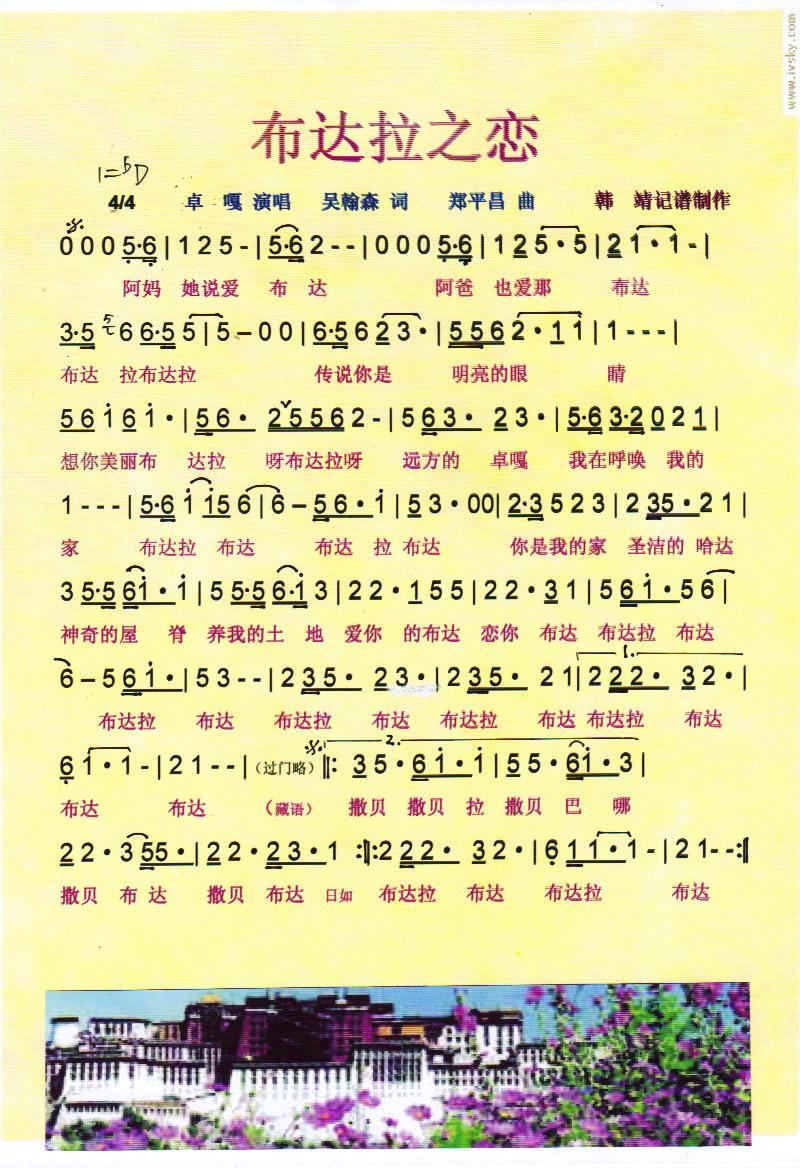 www.ivsky.com
布达拉之恋
1=♭D
4/4 卓 嘎 演唱 吴翰森 词 郑平昌 曲 韩 靖记谱制作
0 0 0 5·6 | 1 2 5 - | 5·6 2 - - | 0 0 0 5·6 | 1 2 5 · 5 | 2 1 · 1 - |
阿妈 她说爱 布 达 阿爸 也爱那 布达
3·5 6 6·5 5 | 5 – 0 0 | 6·5 6 2 3 · | 5 5 6 2 · 1 1 | 1 - - - |
布达 拉布达拉 传说你是 明亮的眼 睛
5 6 i 6 i · | 5 6 · 2 5 5 6 2 - | 5 6 3 · 2 3 · | 5·6 3·2 0 2 1 |
想你美丽布 达拉 呀布达拉呀 远方的 卓嘎 我在呼唤 我的
1 - - - | 5·6 i i5 6 | 6 – 5 6 · i | 5 3 · 0 0 | 2·3 5 2 3 | 2 3 5 · 2 1 |
家 布达拉 布达 布达 拉 布达 你是我的家 圣洁的 哈达
3 5·5 6 i · i | 5 5·5 6·i 3 | 2 2 · 1 5 5 | 2 2 · 3 1 | 5 6 i · 5 6 |
神奇的屋 脊 养我的土 地 爱你 的布达 恋你 布达 布达拉 布达
6 – 5 6 i · | 5 3 - - | 2 3 5 · 2 3 · | 2 3 5 · 2 1 | 1. 2 2 2 · 3 2 · |
布达拉 布达 布达拉 布达 布达拉 布达 布达拉 布达
6 1 · 1 - | 2 1 - - | (过门略) 2. ‖: 3 5 · 6 i · i | 5 5 · 6 i · 3 |
布达 布达 (藏语) 撒贝 撒贝 拉 撒贝 巴 哪
2 2 · 3 5 5 · | 2 2 · 2 3 · 1 :‖: 2 2 2 · 3 2 · | 6 1 1 · 1 - | 2 1 - - :‖
撒贝 布 达 撒贝 布达 日如 布达拉 布达 布达拉 布达